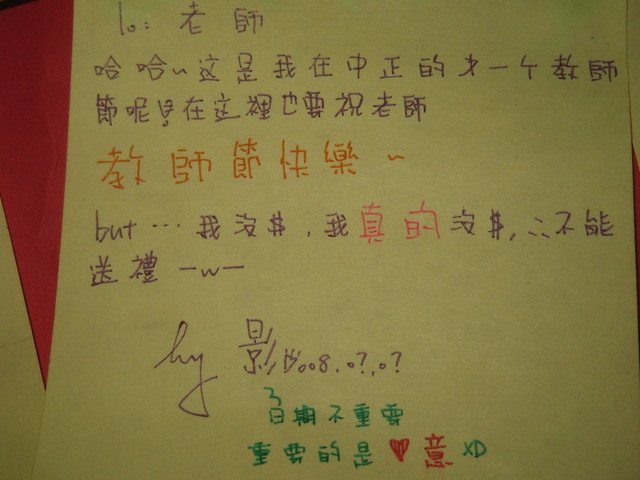 to: 老師
哈哈~这是我在中正的才一个教師
節呢!在這裡也要祝老師
教師節快樂~
but…我沒$,我真的沒$,∴不能
送禮 -w-
by 影 2008.0?.0?
日期不重要
重要的是♥意 XD